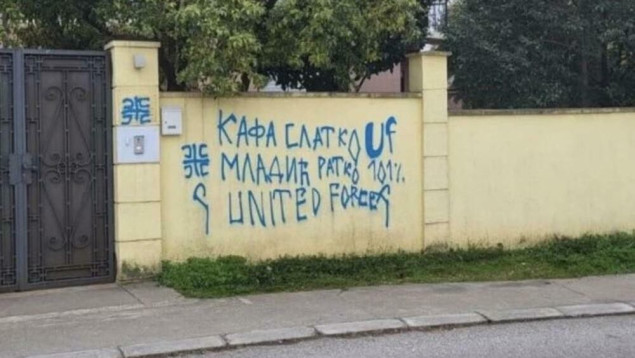 КАФА СЛАТКО UF
МЛАДИЋ РАТКО 101%
UNITED FORCES